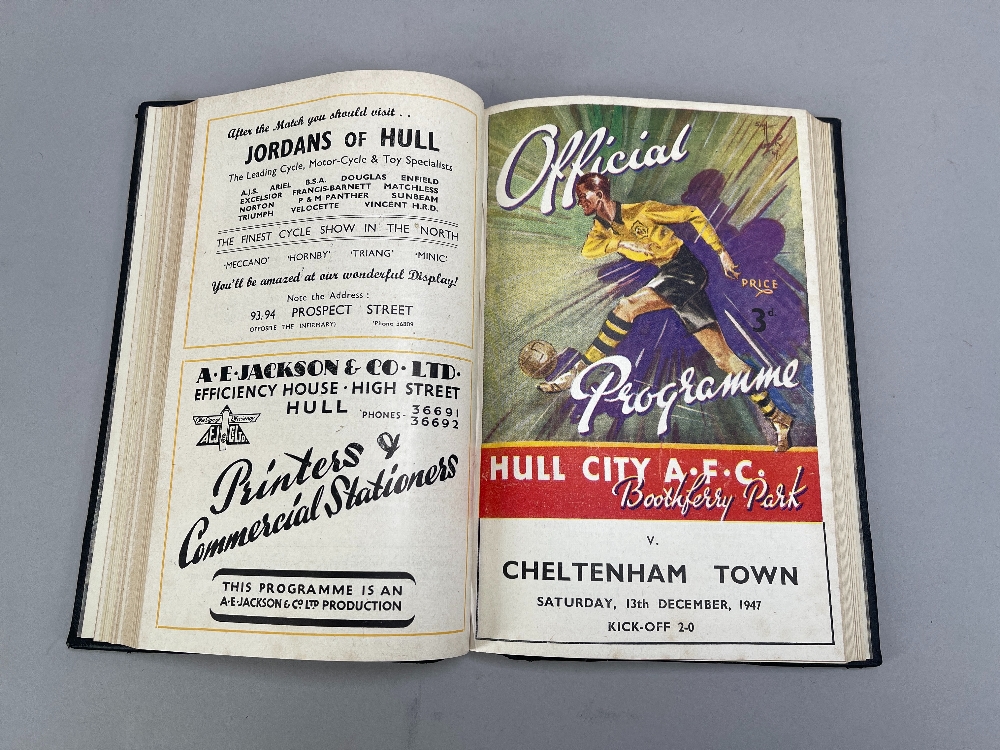 After the Match you should visit . .
JORDANS OF HULL
The Leading Cycle, Motor-Cycle & Toy Specialists
A.J.S. ARIEL B.S.A. DOUGLAS ENFIELD
EXCELSIOR FRANCIS-BARNETT MATCHLESS
NORTON P & M PANTHER SUNBEAM
TRIUMPH VELOCETTE VINCENT H.R.D.
THE FINEST CYCLE SHOW IN THE NORTH
'MECCANO' 'HORNBY' 'TRIANG' 'MINIC'
You'll be amazed at our wonderful Display!
Note the Address :
93.94 PROSPECT STREET
(OPPOSITE THE INFIRMARY) 'Phone 36809
A·E·JACKSON & CO·LTD·
EFFICIENCY HOUSE · HIGH STREET
HULL 'PHONES - 36691
36692
AEJ&CLo
Printers &
Commercial Stationers
THIS PROGRAMME IS AN
A·E·JACKSON & Co LTD PRODUCTION
Official
PRICE
3d
Programme
HULL CITY A·F·C.
Boothferry Park
V.
CHELTENHAM TOWN
SATURDAY, 13th DECEMBER, 1947
KICK-OFF 2-0